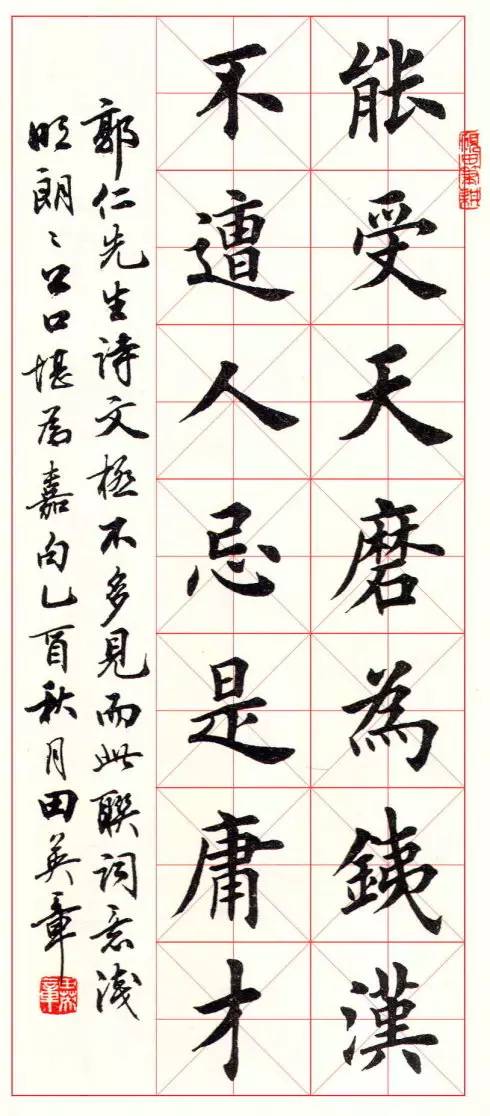 能受天磨為銕漢
不遭人忌是庸才
郭仁先生詩文極不多見而此聯詞意淺
明朗〻上口堪為嘉句乙酉秋月田英章